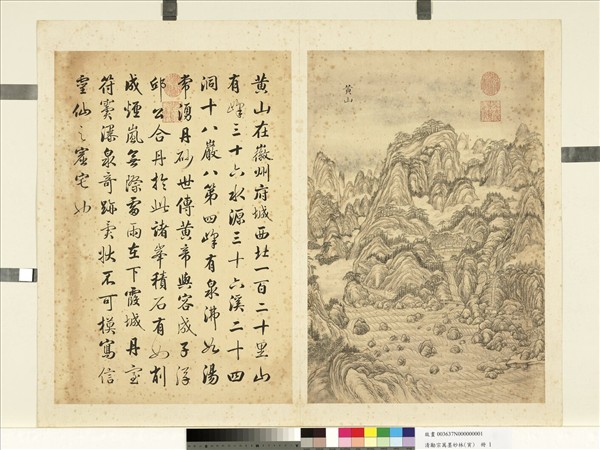 黃山在徽州府城西北一百二十里山
有峰三十六水源三十六溪二十四
洞十八巖八第四峰有泉沸如湯
常湧丹砂世傳黃帝與容成子浮
邱公合丹於此諸峯積石有如削
成煙嵐無際雷雨在下霞城丹室
符竇瀑泉奇跡異狀不可模寫信
靈仙之窟宅也
黃山
故畫 003637N000000001
清勵宗萬墨妙珠林(寅) 冊 1